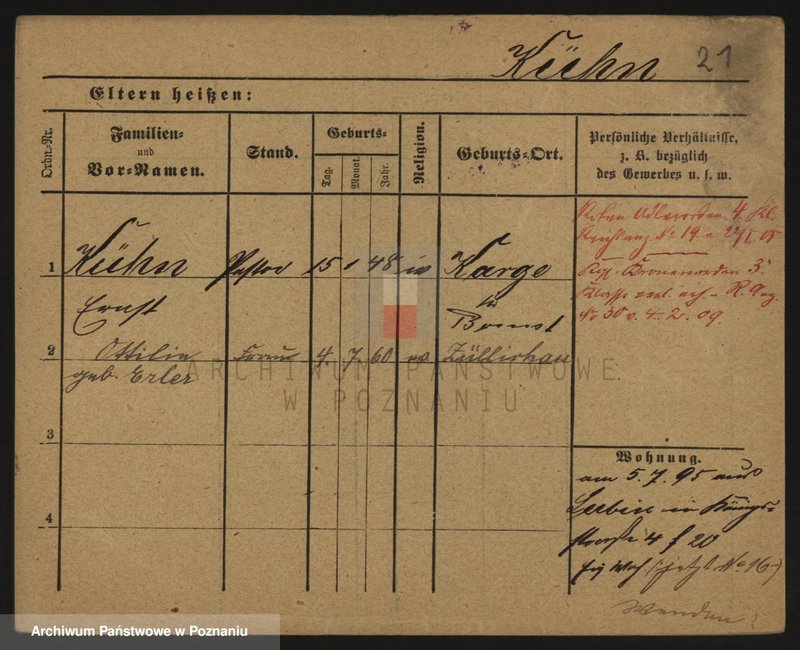 Kühn 21
Eltern heißen:
Ordn.-Nr.
Familien-
und
Vor-Namen.
Stand.
Geburts-
Tag.
Monat.
Jahr.
Religion.
Geburts-Ort.
Persönliche Verhältnisse,
z. B. bezüglich
des Gewerbes u. s. w.
Rothen Adlerorden 4. Kl.
Reichsanz. No 19. v. 22/I 05
Kgl. Kronenorden 3.
Klasse R. Anz.
No 30 v. 4. 2. 09.
1 Kühn Pastor 15 1 48 ev Karge
Ernst
Bomst
2 Ottilie Frau 4. 7. 60 ev. Züllichau
geb. Erler
3
4
Wohnung.
am 5. 7. 95 aus
Lubin in Königs-
strasse 4 f 20
(jetzt No 16)
Wenden!
ARCHIWUM PAŃSTWOWE
W POZNANIU
Archiwum Państwowe w Poznaniu